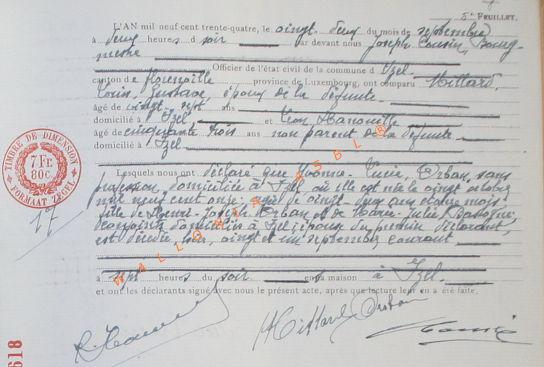 5e FEUILLET.
L'AN mil neuf cent trente-quatre, le vingt deux du mois de septembre
à deux heures du soir par devant nous Joseph Cousin, Bourg-
mestre
Officier de l'état civil de la commune d'Izel.
canton de Florenville province de Luxembourg, ont comparu Hittard,
Louis, Gustave, époux de la défunte
âgé de vingt sept ans
domicilié à Izel et Léon
âgé de cinquante trois ans non parent de la défunte
domicilié à Izel
Lesquels nous ont déclaré que Yvonne Lucie, Orban, sans
profession, domiciliée à Izel où elle est née le vingt octobre
mil neuf cent onze, âgée de vingt deux ans onze mois
fille de Henri Joseph Orban et de Marie Julie Bastogne,
conjoints domiciliés à Izel, épouse du premier déclarant,
est décédée hier, vingt et un septembre courant
à sept heures du soir en sa maison à Izel
et ont les déclarants signé avec nous le présent acte, après que lecture leur en a été faite.
Hittard Orban
TIMBRE DE DIMENSION
7 Fr.
80c.
FORMAAT ZEGEL
17
618
WALLONIA ASBL